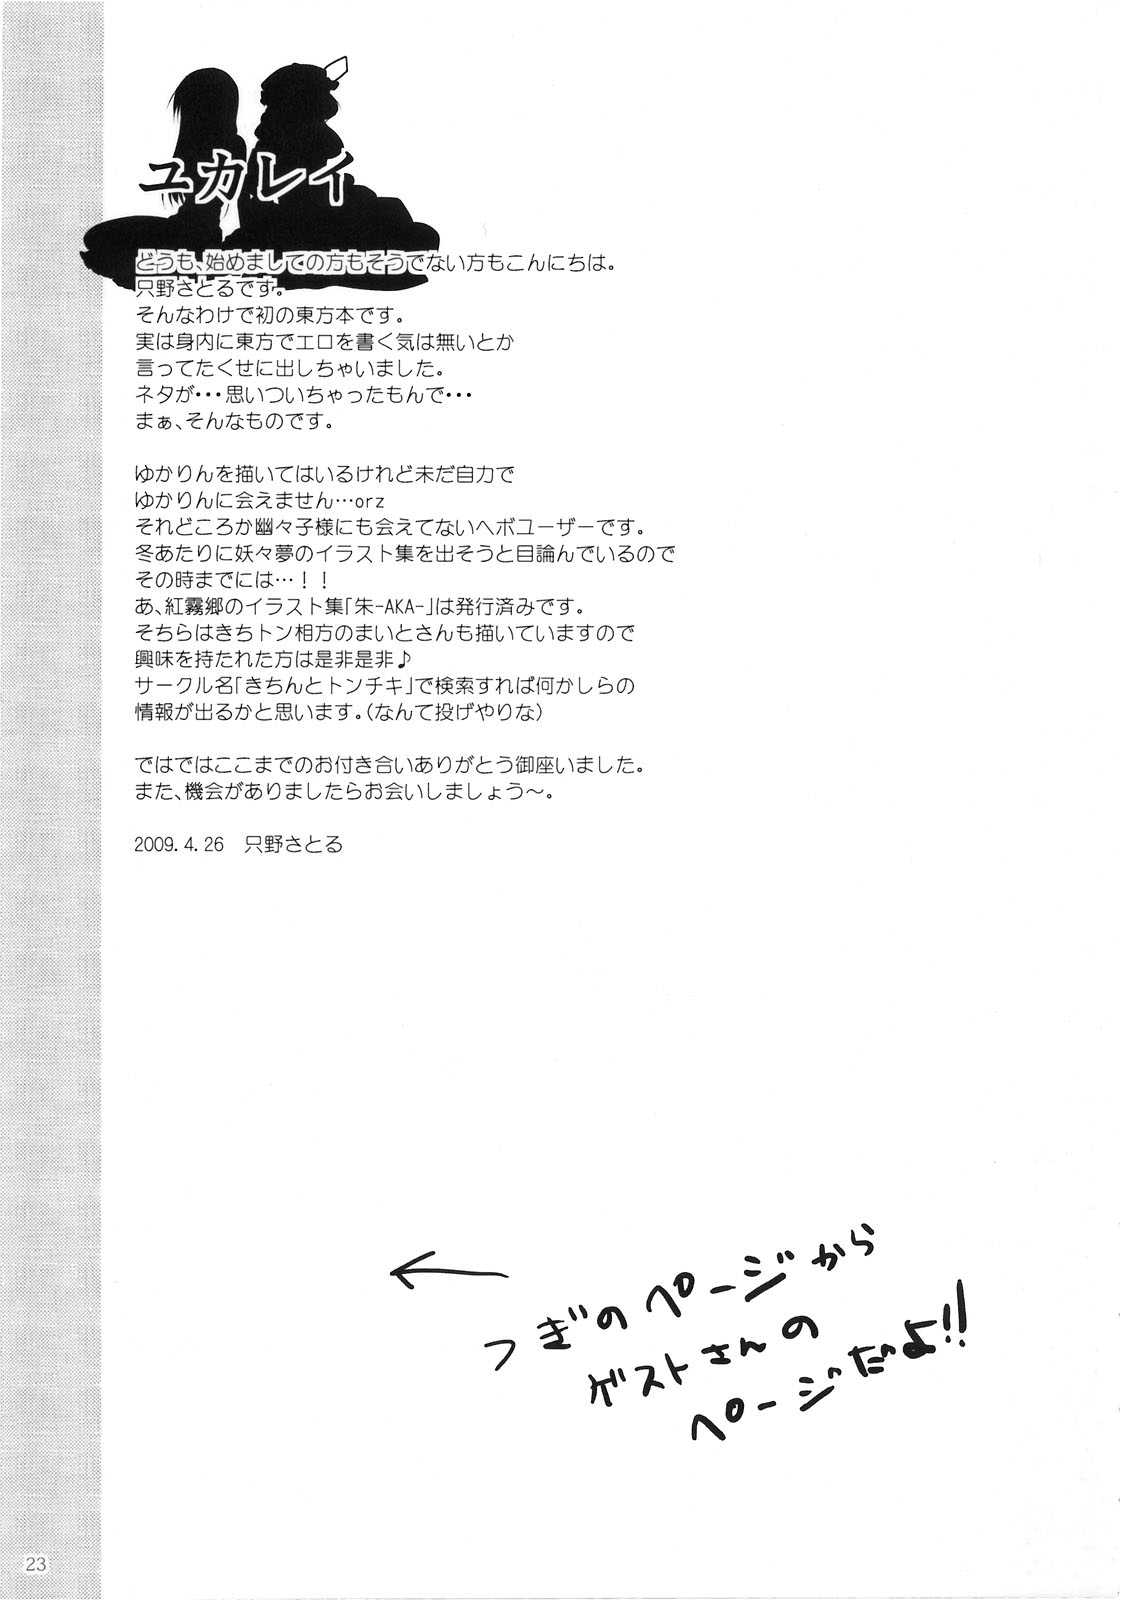 ユカレイ
どうも、始めましての方もそうでない方もこんにちは。
只野さとるです。
そんなわけで初の東方本です。
実は身内に東方でエロを書く気は無いとか
言ってたくせに出しちゃいました。
ネタが・・・思いついちゃったもんで・・・
まぁ、そんなものです。
ゆかりんを描いてはいるけれど未だ自力で
ゆかりんに会えません…orz
それどころか幽々子様にも会えてないヘボユーザーです。
冬あたりに妖々夢のイラスト集を出そうと目論んでいるので
その時までには…！！
あ、紅霧郷のイラスト集「朱-AKA-」は発行済みです。
そちらはきちトン相方のまいとさんも描いていますので
興味を持たれた方は是非是非♪
サークル名「きちんとトンチキ」で検索すれば何かしらの
情報が出るかと思います。（なんて投げやりな）
ではではここまでのお付き合いありがとう御座いました。
また、機会がありましたらお会いしましょう～。
2009.4.26　只野さとる
つぎのページから
ゲストさんの
ページだよ!!
23